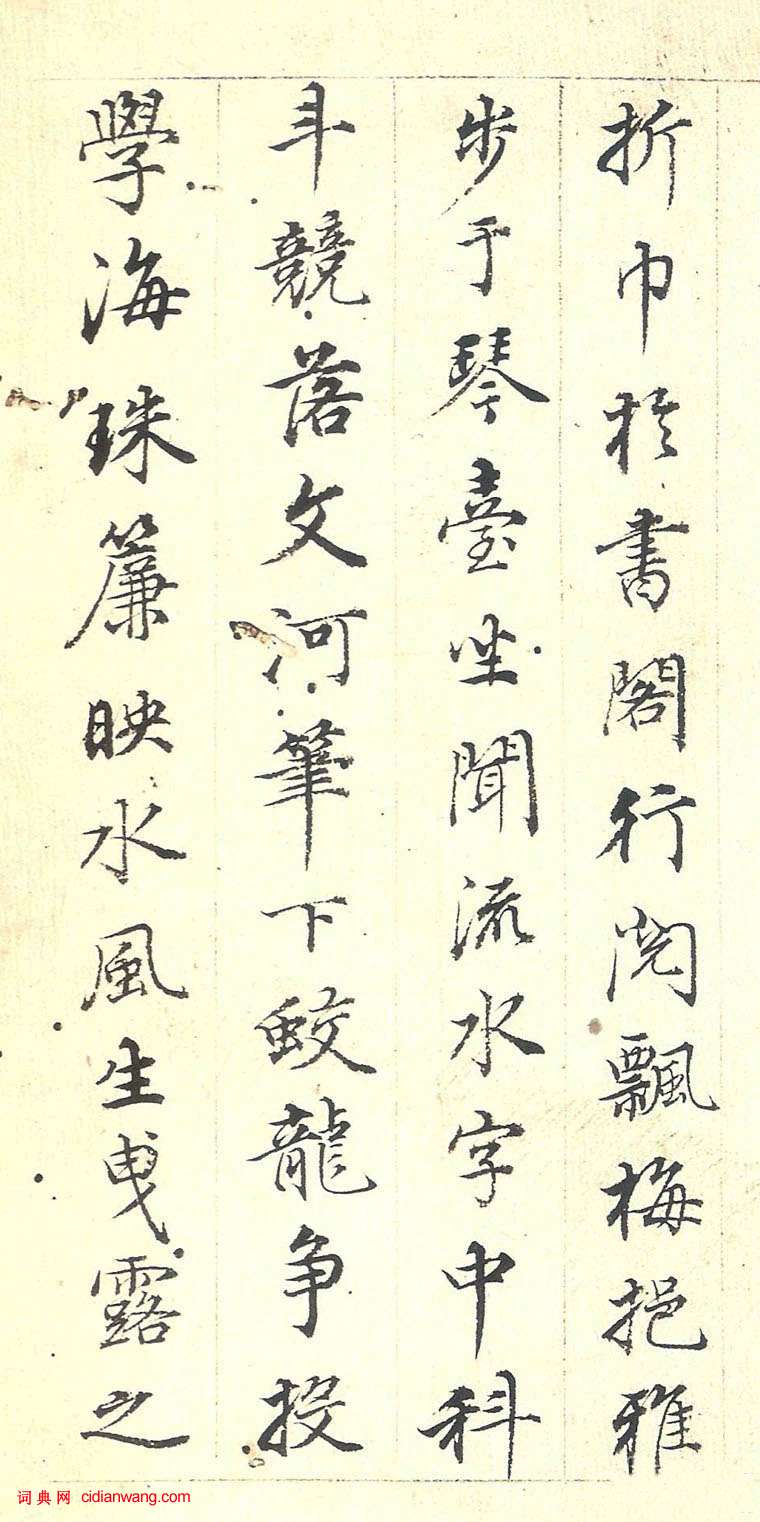 折巾於書閣行閱飄梅挹雅
步于琴臺坐聞流水字中科
斗競落文河筆下蛟龍争投
學海珠簾映水風生曳露之
词典网 cidianwang.com